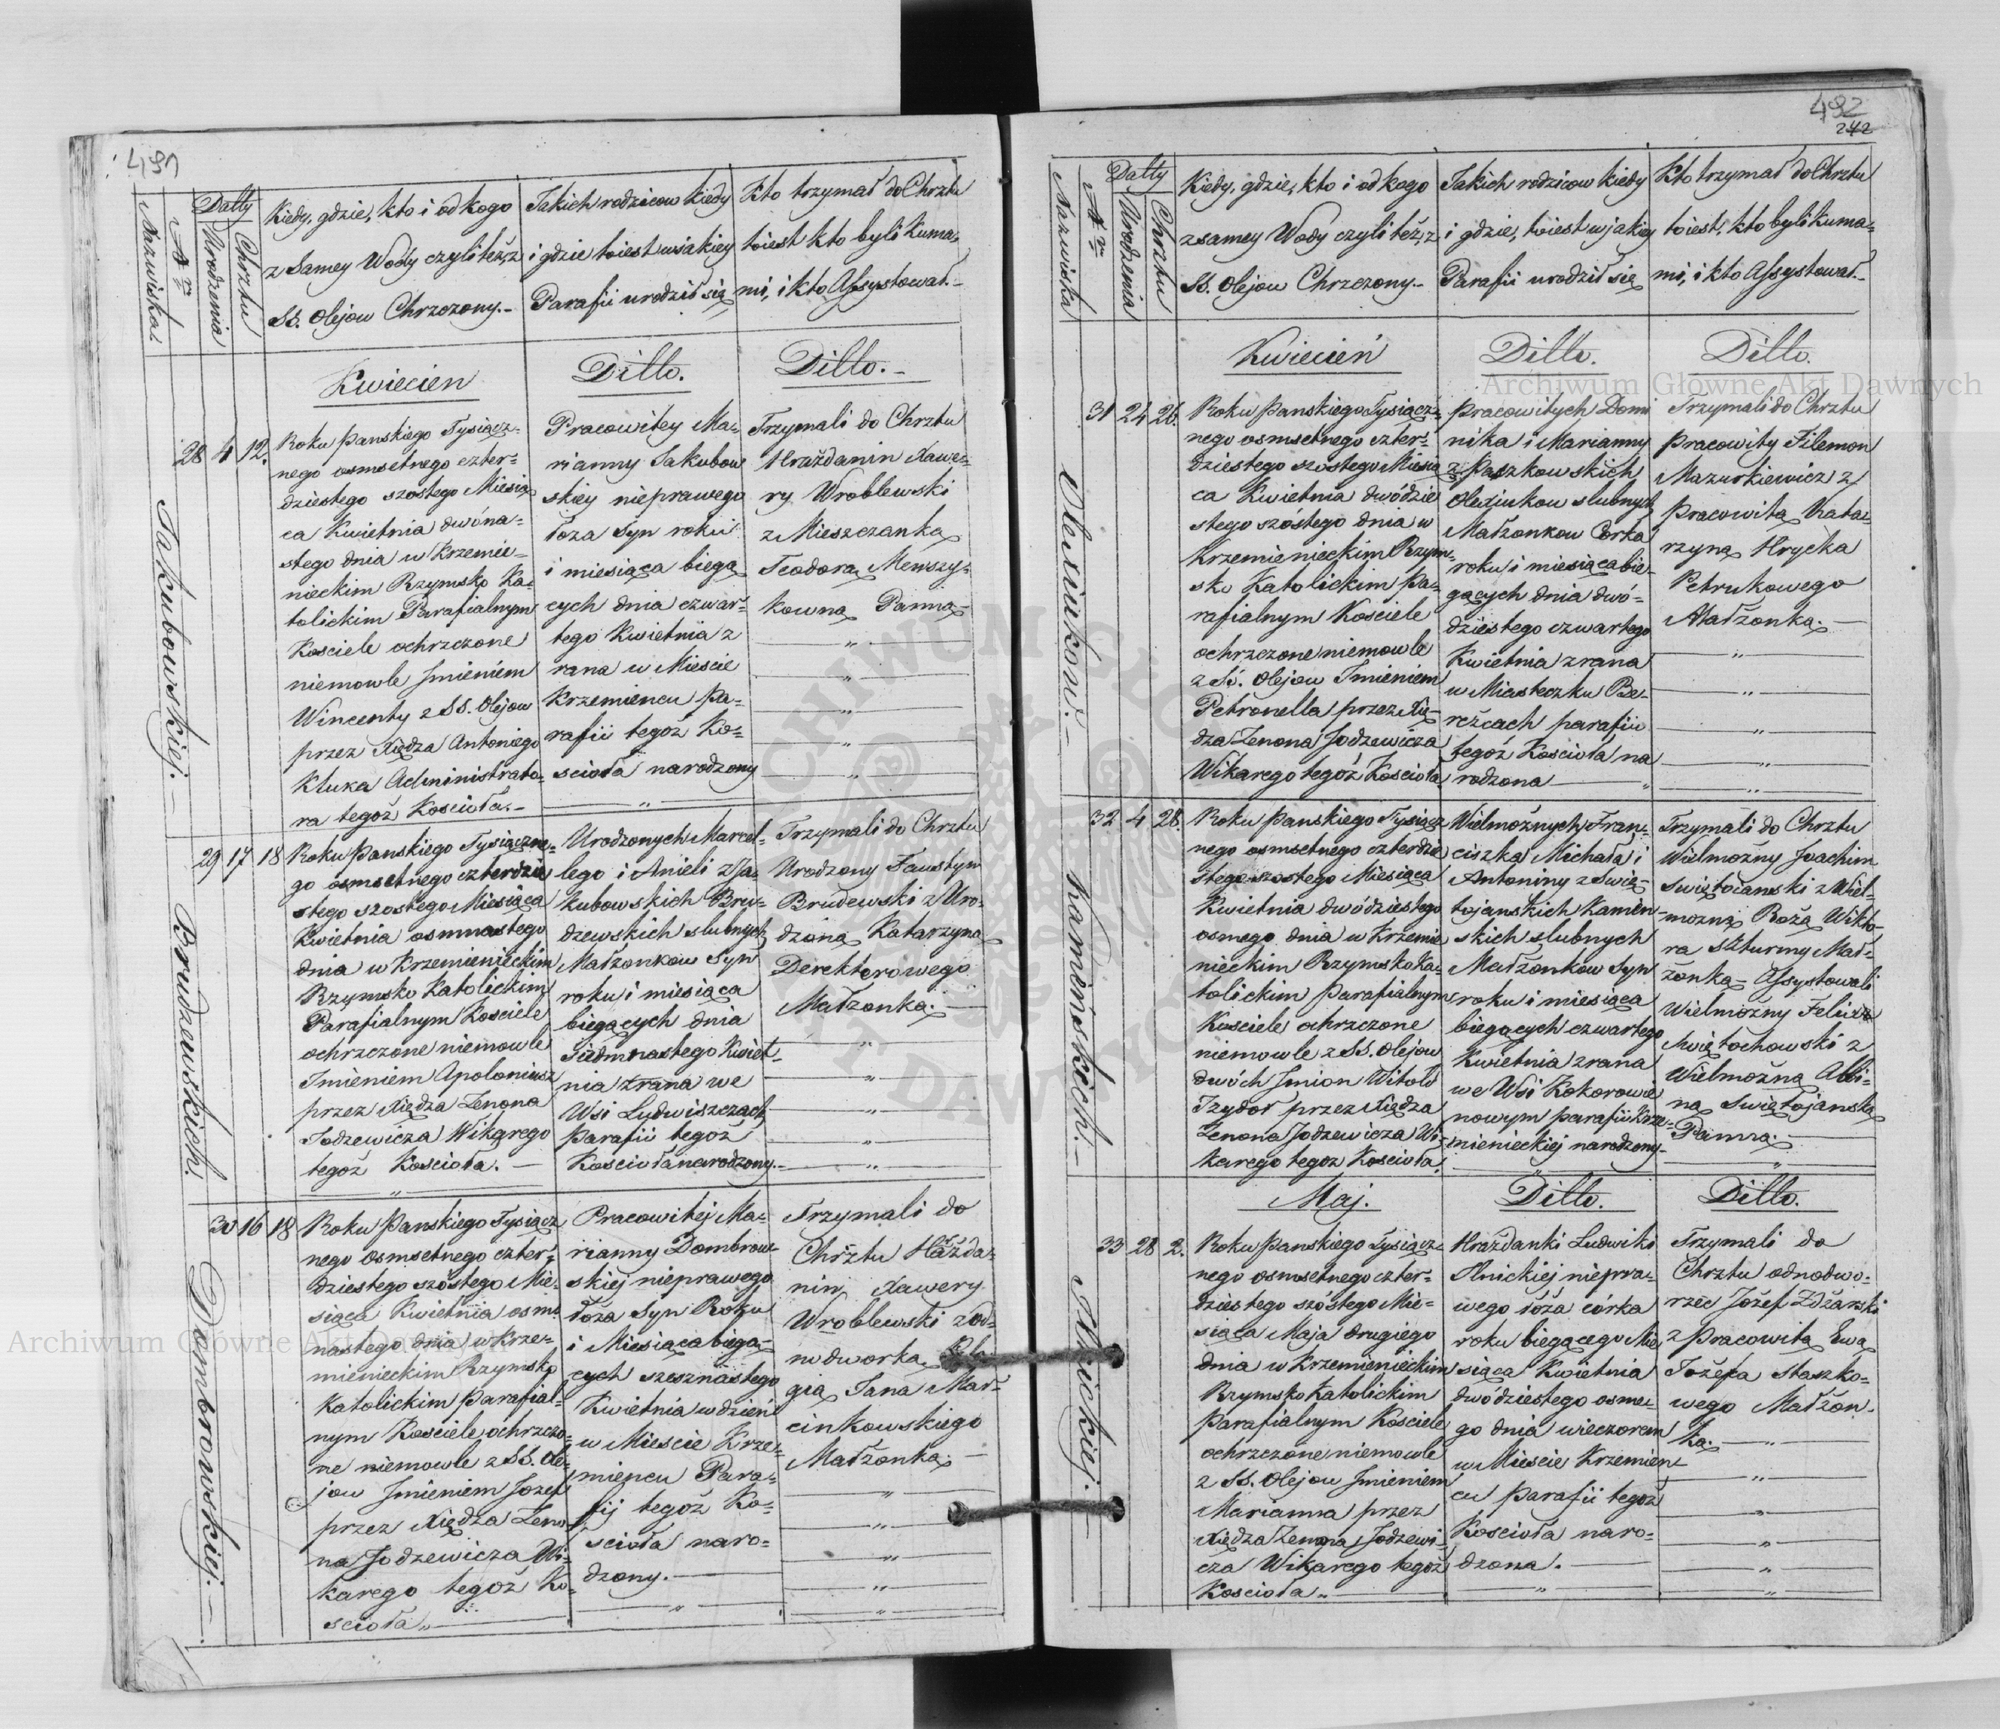 491
Nazwiska
Nr
Datty
Urodzenia
Chrztu
Kiedy, gdzie, kto i od kogo
z Samey Wody czyli też, z
SS. Olejow Chrzczony.-
Jakich rodzicow kiedy
i gdzie toiest w jakiey
Parafii urodził się
Kto trzymał do Chrztu
toiest kto byli Kuma-
mi, i kto Assystował.-
Kwiecien
Ditto.
Ditto.-
Jakubowskiej.
28 4 12.
Roku Panskiego Tysiącz-
nego osmsetnego czter-
dziestego szostego Miesią
ca Kwietnia dwóna-
stego dnia w Krzemie-
nieckim Rzymsko Ka-
tolickim Parafialnym
Kosciele ochrzczone
niemowle Jmieniem
Wincenty z SS. Olejow
przez Xiędza Antoniego
Kluka Administrato-
ra tegoż Koscioła.-
Pracowitey Ma-
rianny Jakubow
skiey nieprawego
łoza Syn roku
i miesiąca bieżą
cych dnia czwar-
tego Kwietnia z
rana w Miescie
Krzemiencu Pa-
rafii tegoż Ko-
scioła narodzony
Trzymali do Chrztu
Hrażdanin Xawe-
ry Wroblewski
z Mieszczanką
Teodorą Menszy-
kowną Panną-
Brudzewskich.
29 17 18
Roku Panskiego Tysiączne-
go osmsetnego czterdzie
stego szostego Miesiąca
Kwietnia osmnastego
dnia w Krzemienieckim
Rzymsko Katolickim
Parafialnym Kosciele
ochrzczone niemowle
Imieniem Apoloniusz
przez Xiędza Zenona
Jodzewicza Wikarego
tegoż Kosciola.-
Urodzonych Marcel-
lego i Anieli z Ja-
kubowskich Bru-
dzewskich slubnych
Małzonkow Syn
roku i miesiąca
biegących dnia
siedmnastego Kwiet-
nia zrana we
Wsi Ludwiszczach
parafii tegoż
Kosciola narodzony.-
Trzymali do Chrztu
Urodzony Faustyn
Brudewski z Uro-
dzoną Katarzyną
Derektorowego
Małzonką.-
Dombrowskiej.-
30 16 18
Roku Panskiego Tysiącz
nego osmsetnego czter-
dziestego szóstego Mie-
siąca Kwietnia osm
nastego dnia w Krze-
mienieckim Rzymsko
Katolickim Parafial-
nym Kosciele ochrzczo-
ne niemowle z SS. Ole-
jow Jmieniem Jozef
przez Xiędza Zeno
na Jodzewicza Wi-
karego tegoż Ko-
scioła
Pracowitej Ma-
rianny Dombrow
skiej nieprawego
łoża Syn Roku
i Miesiąca biegą-
cych szesznastego
Kwietnia w dzień
w Miescie Krze-
miencu Para-
fij tegoż Ko-
scioła naro-
dzony.-
Trzymali do
Chrztu Hażda-
nin Xawery
Wroblewski z od-
nodworką
gią Jana Mar-
cinkowskiego
Małzonką.-
492
242
Nazwiska
Nr
Datty
Urodzenia
Chrztu
Kiedy, gdzie, kto i od kogo
z samey Wody czyli też, z
SS. Olejow Chrzczony.-
Jakich rodzicow kiedy
i gdzie, toiest w jakiey
Parafii urodził się
Kto trzymał do Chrztu
toiest, kto byli kuma-
mi, i kto Assystował.-
Kwiecień
Ditto.
Ditto.
Olexiukow.-
31 24 26.
Roku Panskiego Tysiącz-
nego osmsetnego czter-
dziestego szostego Miesią
ca Kwietnia dwódzie
stego szóstego dnia w
Krzemienieckim Rzym-
sko Katolickim Pa-
rafialnym Kosciele
ochrzczone niemowle
z SS. Olejow Imieniem
Petronella przez Xię-
dza Zenona Jodzewicza
Wikarego tegoż Kosciola
pracowitych Domi
nika i Marianny
z Paszkowskich
Olexiukow slubnych
Małżonkow Corka
roku i miesiąca bie-
gących dnia dwó-
dziestego czwartego
Kwietnia z rana
w Miasteczku Be-
reżcach parafii
tegoż Kosciola na
rodzona
Trzymali do Chrztu
pracowity Filemon
Mazurkiewicz z
pracowitą Kata-
rzyną Hrycka
Petrukowego
Małzonką.-
Kamienskich.-
32 4 28.
Roku Panskiego Tysiącz
nego osmsetnego czterdzie
stego szostego Miesiąca
Kwietnia dwódziestego
osmego dnia w Krzemie
nieckim Rzymsko Ka-
tolickim Parafialnym
Kosciele ochrzczone
niemowle z SS. Olejow
dwóch Jmion Witołd
Izydor przez Xiędza
Zenona Jodzewicza Wi-
karego tegoz Kosciola
Wielmożnych Fran-
ciszka Michała i
Antoniny z Swię-
tojanskich Kamien-
skich slubnych
Małzonkow Syn
roku i miesiąca
biegących czwartego
Kwietnia z rana
we Wsi Kokorowie
nowym parafii Krze-
mienieckiej narodzony-
Trzymali do Chrztu
Wielmożny Joachim
Swiętojanski z Wiel-
możną Rożą Wikto-
ra Szturmy Mał-
żonką- Assystowali
Wielmożny Felix
Swiętochowski z
Wielmożną Albi-
ną Swiętojanską
Panną.-
Maj.
Ditto.
Ditto.
Ilnickiej.-
33 28 2.
Roku Panskiego Tysiącz-
nego osmsetnego czter-
dziestego szóstego Mie-
siąca Maja drugiego
dnia w Krzemienieckim
Rzymsko Katolickim
Parafialnym Kosciele
ochrzczone niemowle
z SS. Olejow Jmieniem
Marianna przez
Xiędza Zenona Jodzewi-
cza Wikarego tegoż
Kosciola
Hrażdanki Ludwiki
Ilnickiej niepra-
wego łóża córka
roku biegącego Mie
siąca Kwietnia
dwódziestego osme-
go dnia wieczorem
w Miescie Krzemien
cu Parafii tegoż
Kościoła naro-
dzona.
Trzymali do
Chrztu odnodwo-
rzec Jożef Zdżarski
z pracowitą Ewą
Jożefa Staszko-
wego Małzon-
ką.-
Archiwum Główne Akt Dawnych
Archiwum Główne Akt Dawnych